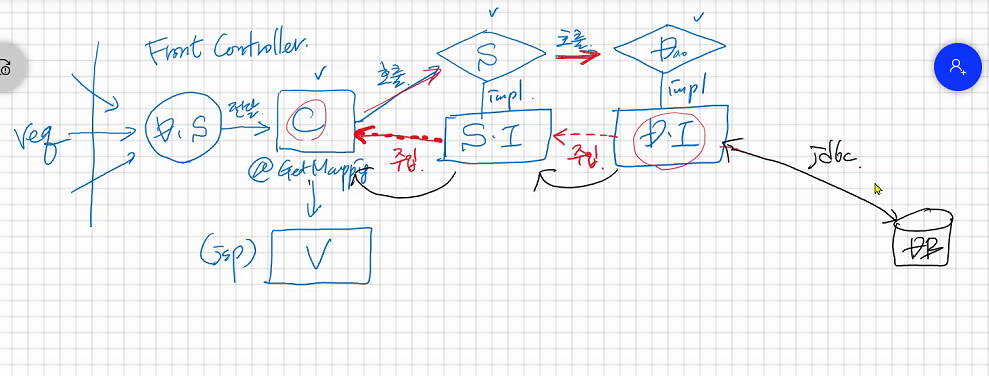 Front Controller.
req
D.S
전달.
C
@GetMapping
호출.
S
impl.
S.I
호출.
Dao
impl
D.I
주입.
주입.
jdbc.
DB
(jsp)
V